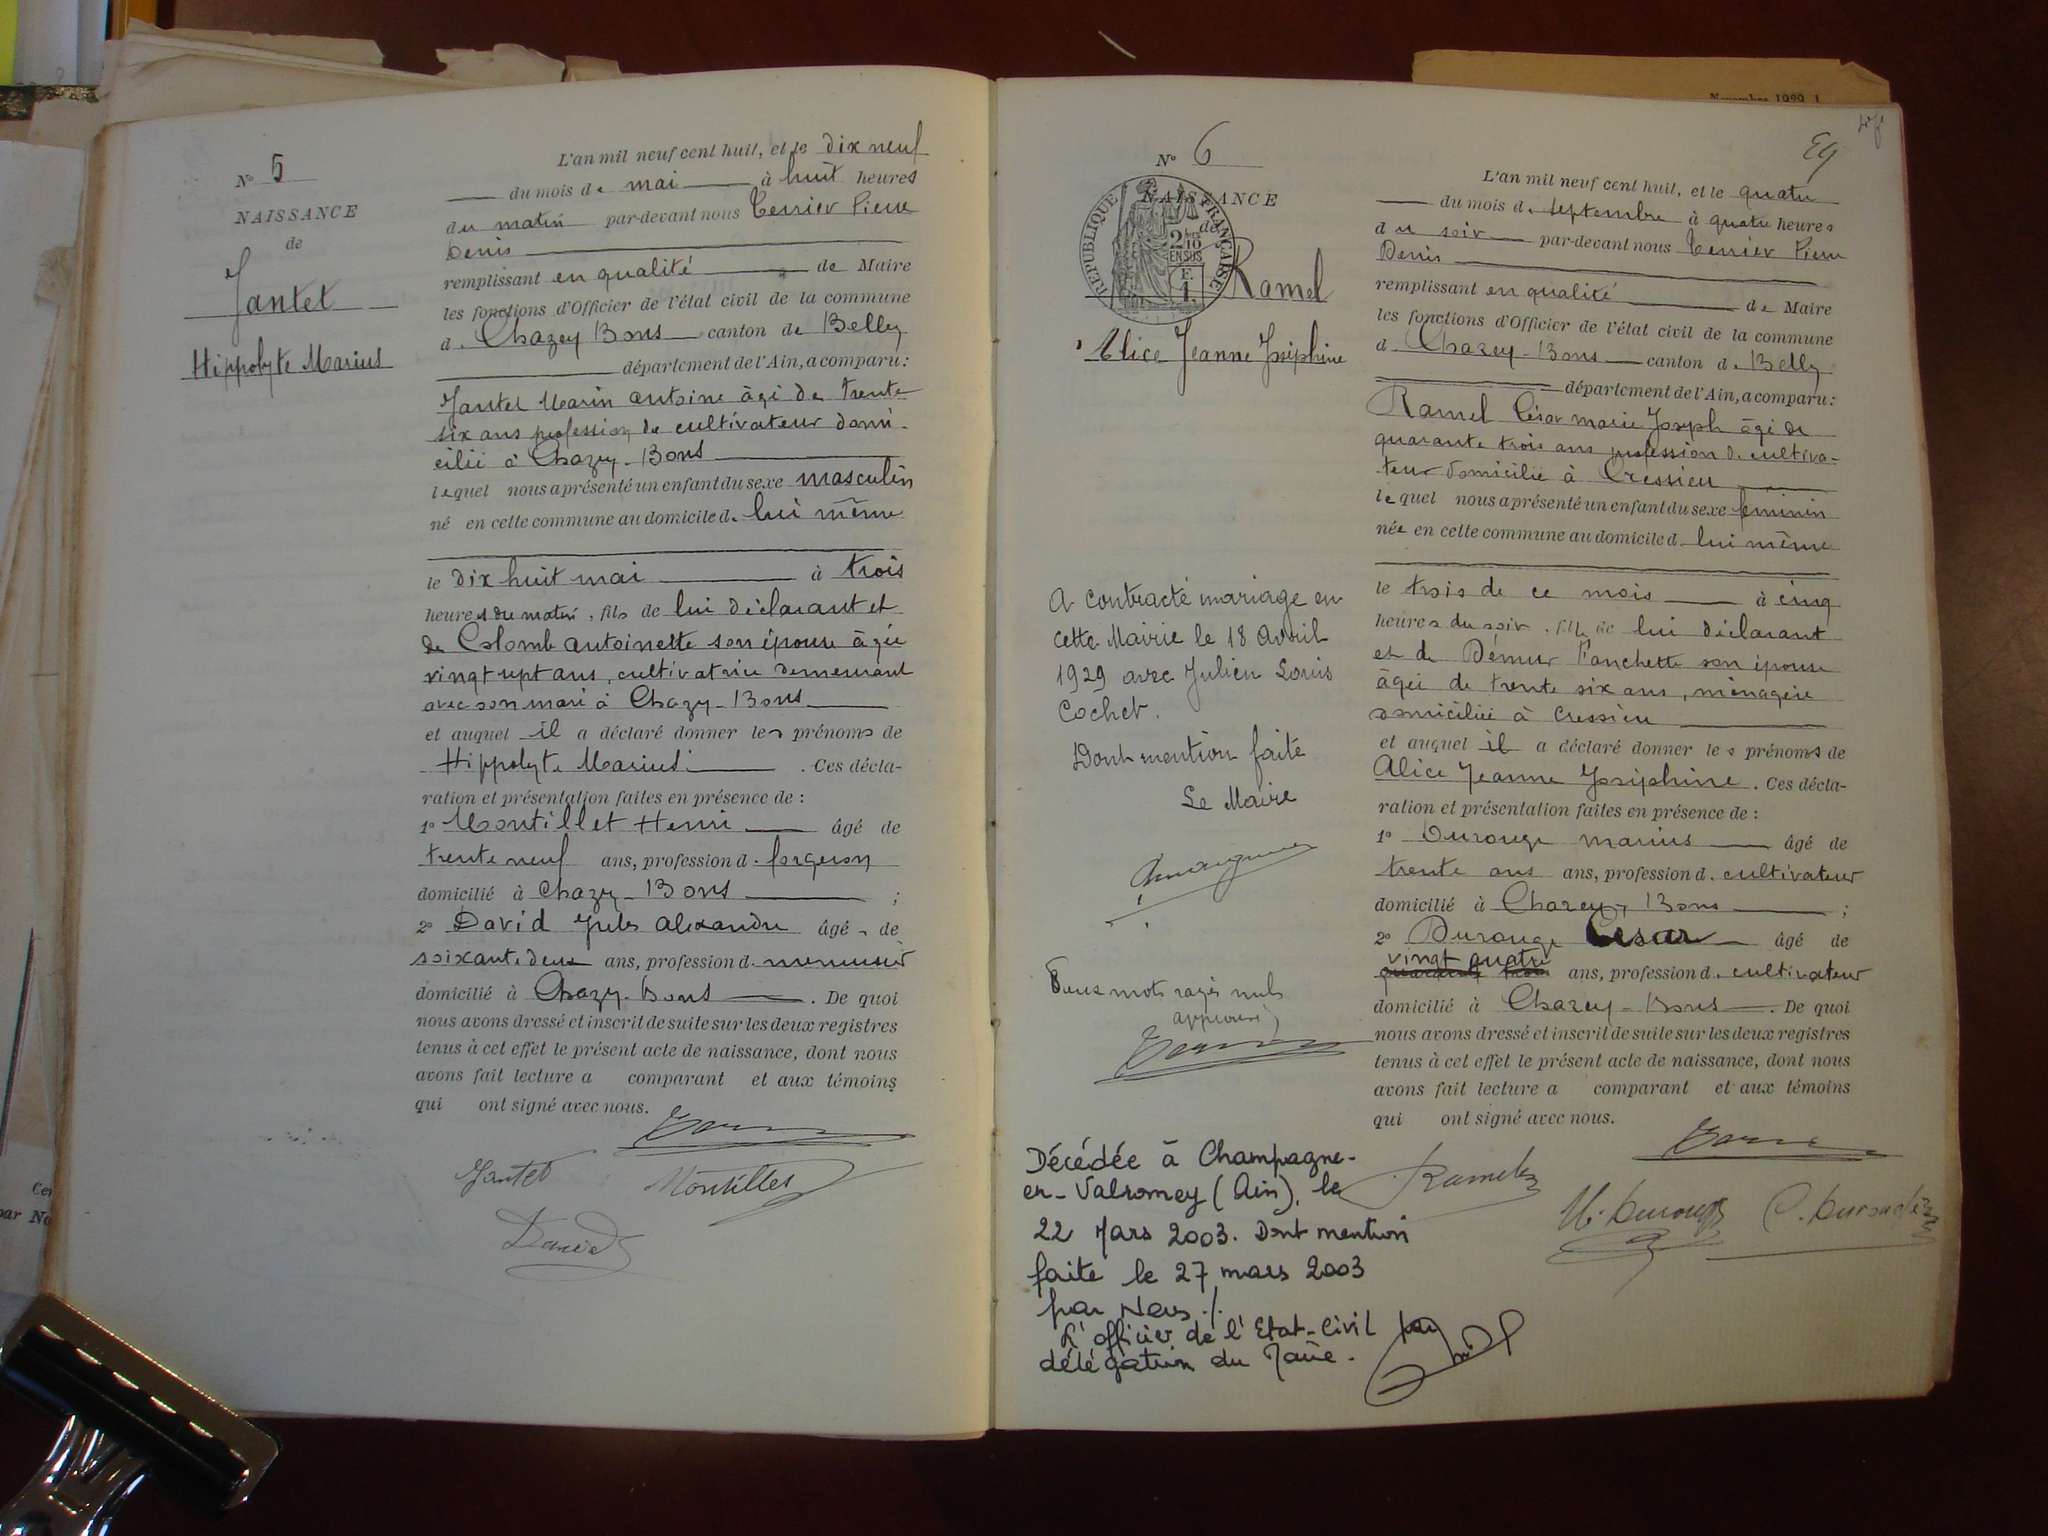 N° 5
NAISSANCE
de
Jantet
Hippolyte Marius
L'an mil neuf cent huit, et le dix neuf
du mois de mai à huit heures
du matin par-devant nous Terrier Pierre
Denis
remplissant en qualité de Maire
les fonctions d'Officier de l'état civil de la commune
d. Chazey Bons canton de Belley
département de l'Ain, a comparu :
Jantet Marin antoine âgé de trente
six ans profession de cultivateur domi-
cilié à Chazey-Bons
lequel nous a présenté un enfant du sexe masculin
né en cette commune au domicile d. lui même
le dix huit mai à trois
heures du matin, fils de lui déclarant et
de Colomb antoinette son épouse âgée
vingt sept ans, cultivatrice demeurant
avec son mari à Chazey-Bons
et auquel il a déclaré donner les prénoms de
Hippolyte Marius. Ces décla-
ration et présentation faites en présence de :
1° Montillet Henri âgé de
trente neuf ans, profession d. forgeron
domicilié à Chazey-Bons ;
2° David Jules Alexandre âgé de
soixante deux ans, profession d. menuisier
domicilié à Chazey-Bons. De quoi
nous avons dressé et inscrit de suite sur les deux registres
tenus à cet effet le présent acte de naissance, dont nous
avons fait lecture a comparant et aux témoins
qui ont signé avec nous.
Jantet
Montillet
David
Novembre 1929
N° 6
NAISSANCE
de
RÉPUBLIQUE FRANÇAISE
2/10 EN SUS
F. 1.
Ramel
Alice Jeanne Joséphine
A contracté mariage en
cette Mairie le 18 Avril
1929 avec Julien Louis
Cochet.
Dont mention faite
Le Maire
Deux mots rayés nuls
approuvé
Décédée à Champagne-
en-Valromey (Ain), le
22 Mars 2003. Dont mention
faite le 27 mars 2003
par Nous ./.
L'officier de l'Etat-Civil par
délégation du Maire.
L'an mil neuf cent huit, et le quatre
du mois d. septembre à quatre heures
du soir par-devant nous Terrier Pierre
Denis
remplissant en qualité de Maire
les fonctions d'Officier de l'état civil de la commune
d Chazey-Bons canton d. Belley
département de l'Ain, a comparu :
Ramel César marie Joseph âgé de
quarante trois ans profession de cultiva-
teur domicilié à Cressieu
lequel nous a présenté un enfant du sexe féminin
née en cette commune au domicile d lui même
le trois de ce mois à cinq
heures du soir, fille de lui déclarant
et de Démur Fanchette son épouse
âgée de trente six ans, ménagère
domiciliée à Cressieu
et auquel il a déclaré donner les prénoms de
Alice Jeanne Joséphine. Ces décla-
ration et présentation faites en présence de :
1° Durouge marius âgé de
trente ans ans, profession d. cultivateur
domicilié à Chazey-Bons ;
2° Durouge Cesar âgé de
vingt quatre
ans, profession d. cultivateur
domicilié à Chazey-Bons. De quoi
nous avons dressé et inscrit de suite sur les deux registres
tenus à cet effet le présent acte de naissance, dont nous
avons fait lecture a comparant et aux témoins
qui ont signé avec nous.
Ramel
M. Durouge